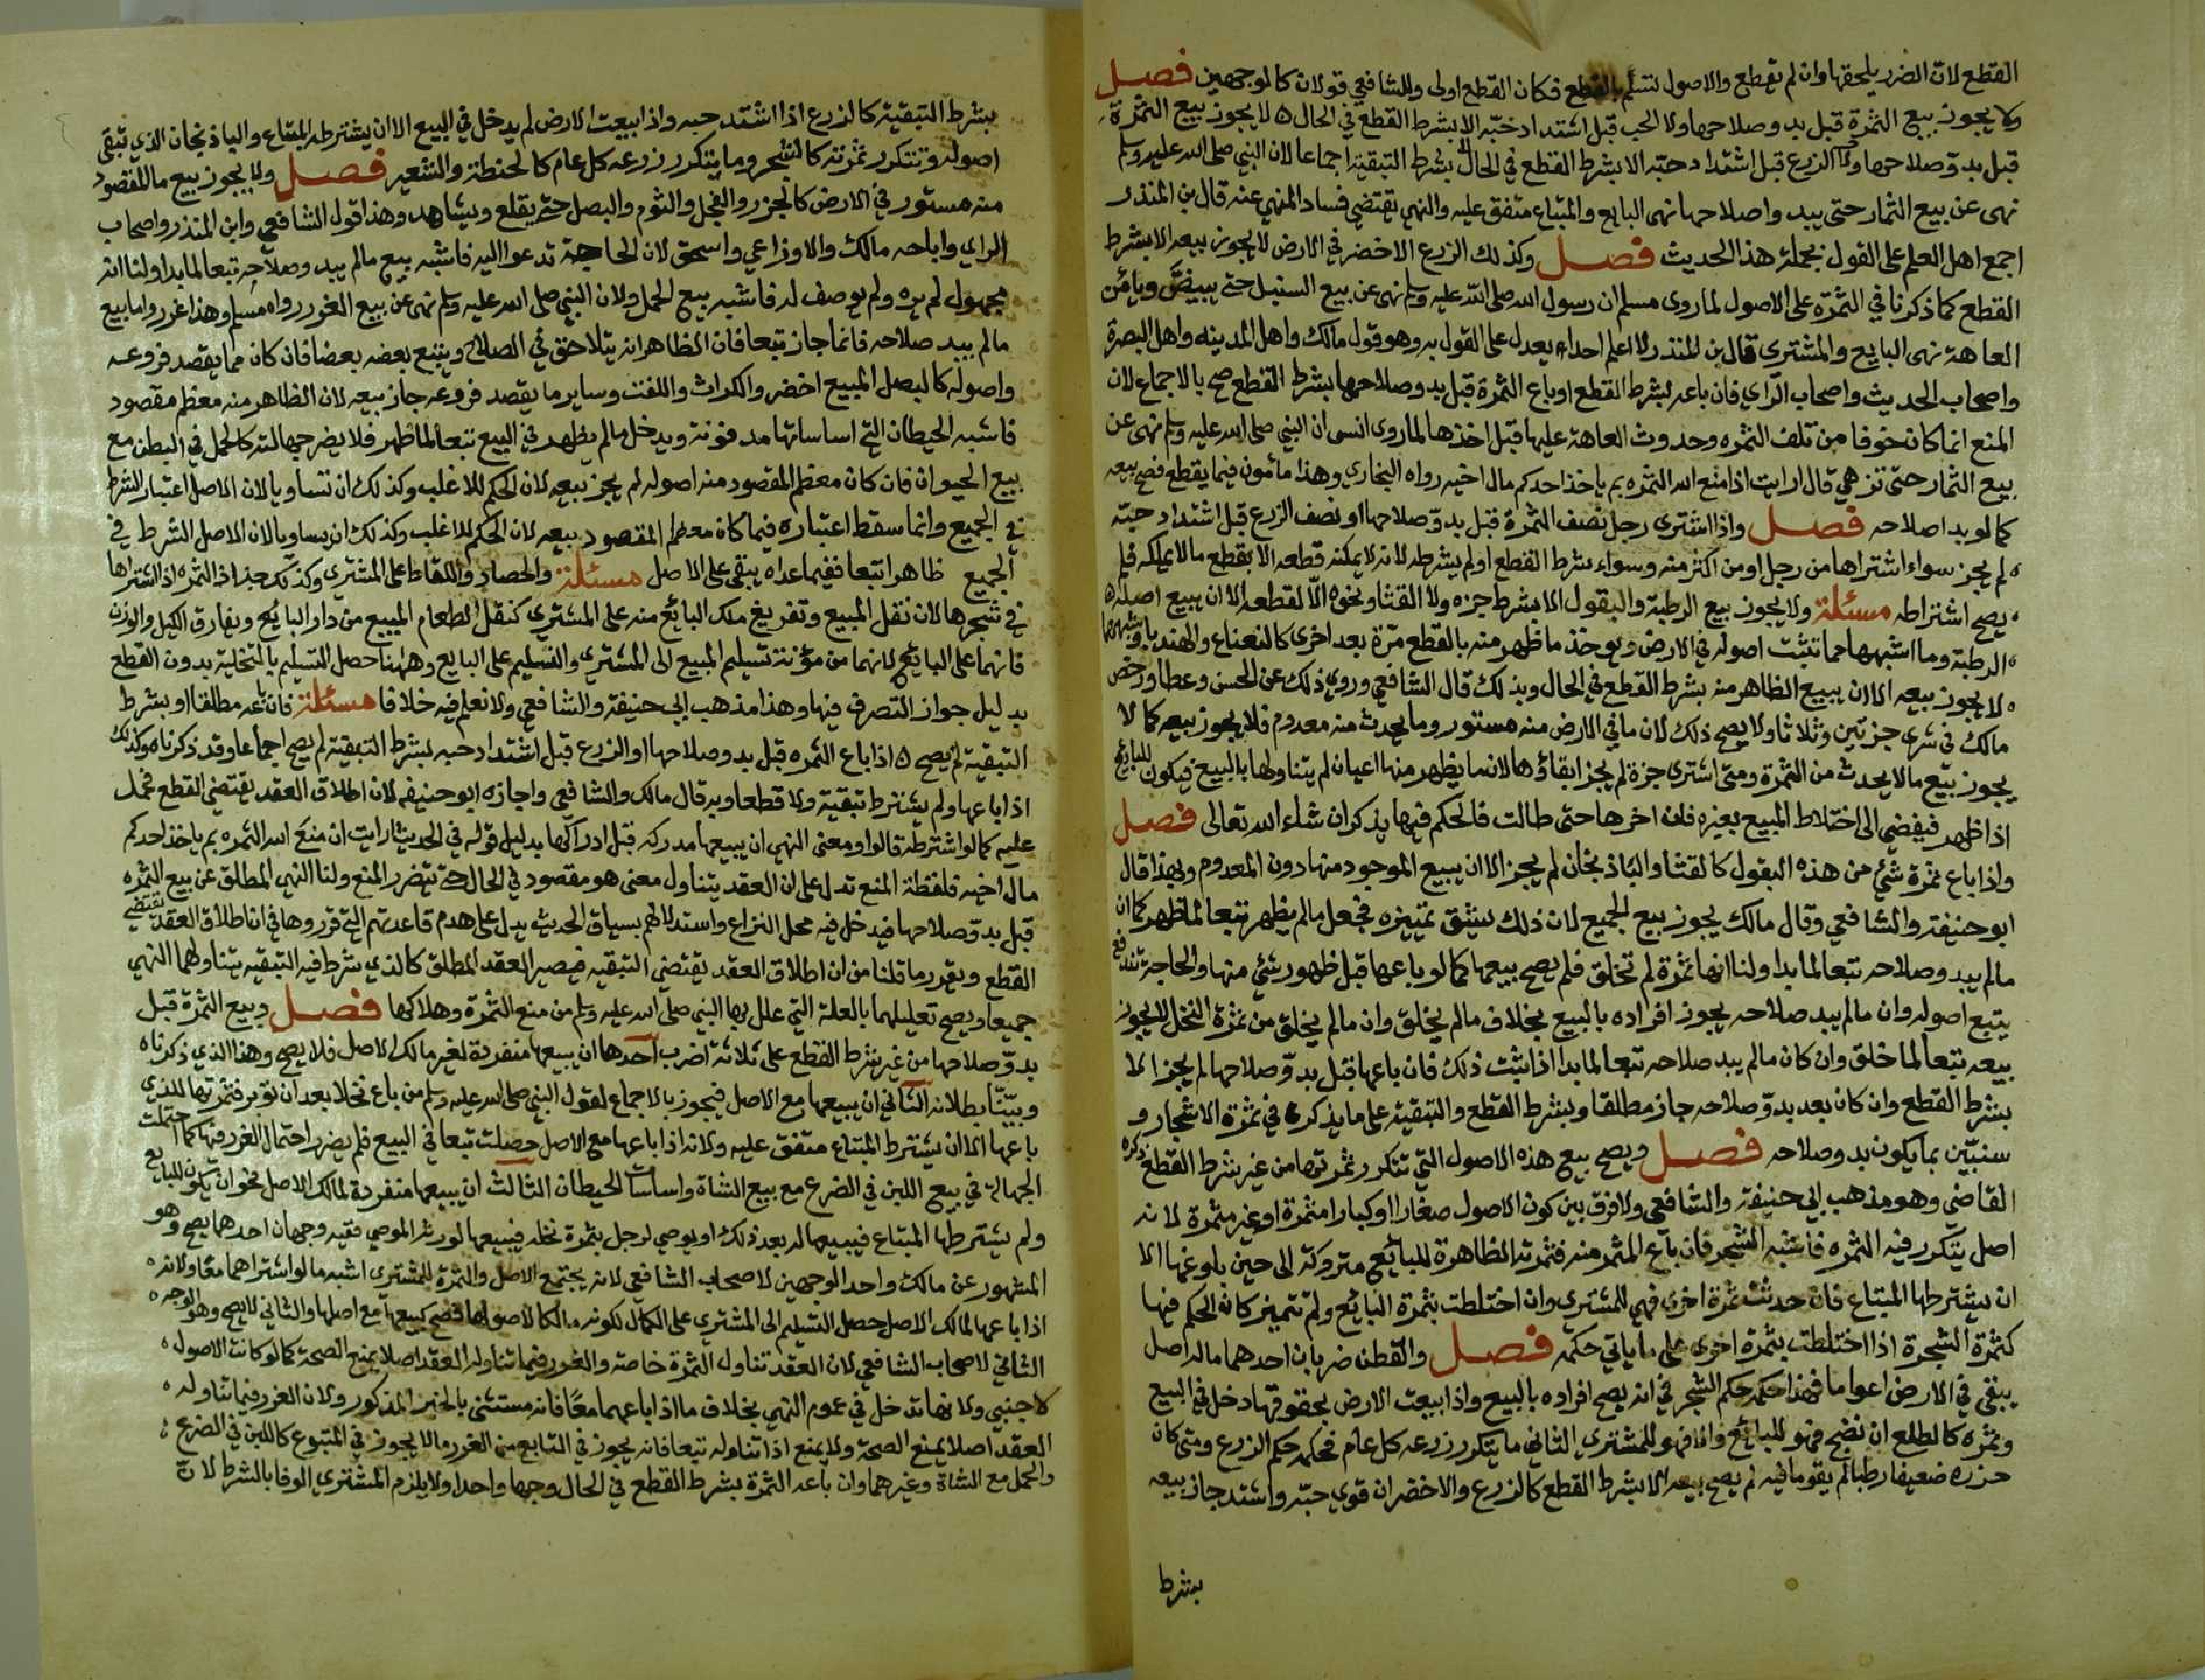 القطع لان الضرر يلحقها وان لم تقطع والاصول تسلم بالقطع فكان القطع اولى وللشافعي قولان كالوجهين فصل
ولا يجوز بيع الثمرة قبل بدو صلاحها ولا الحب قبل اشتداد حبه الا بشرط القطع في الحال ه لا يجوز بيع الثمرة
قبل بدو صلاحها ولا الزرع قبل اشتداد حبه الا بشرط القطع في الحال بشرط التبقية اجماعا لان النبي صلى الله عليه وسلم
نهى عن بيع الثمار حتى يبد واصلاحها نهى البايع والمبتاع متفق عليه والنهي يقتضي فساد المنهي عنه قال بن المنذر
اجمع اهل العلم على القول بجملة هذا الحديث فصل وكذلك الزرع الاخضر في الارض لا يجوز بيعه الا بشرط
القطع كما ذكرنا في الثمرة على الاصول لما روى مسلم ان رسول الله صلى الله عليه وسلم نهى عن بيع السنبل حتى يبيض ويأمن
العاهة نهى البايع والمشتري قال بن المنذر لا اعلم احدا يعدل عن القول به وهو قول مالك واهل المدينه واهل البصرة
واصحاب الحديث واصحاب الرأي فان باعه بشرط القطع او باع الثمرة قبل بدو صلاحها بشرط القطع صح بالاجماع لان
المنع انما كان خوفا من تلف الثمره وحدوث العاهة عليها قبل اخذها لما روى انس ان النبي صلى الله عليه وسلم نهى عن
بيع الثمار حتى تزهي قال ارايت اذا منع الله الثمره بم ياخذ احدكم مال اخيه رواه البخاري وهذا مأمون فيما يقطع فصح بيعه
كما لو بد اصلاحه فصل واذا اشترى رجل نصف الثمرة قبل بدو صلاحها او نصف الزرع قبل اشتداد حبه
لم يجز سواء اشتراها من رجل او من اكثر منه وسواء بشرط القطع او لم يشرطه لانه لا يمكنه قطعه الا بقطع ما لا يملكه فلم
يصح اشتراطه مسئلة ولا يجوز بيع الرطبة والبقول الا بشرط جزه ولا القثا ونحوه الا لقطعه الا ان يبيع اصله ه
الرطبة وما اشبهها مما تثبت اصوله في الارض ويوخذ ما ظهر منه بالقطع مرة بعد اخرى كالنعناع والهندبا وشبههما
لا يجوز بيعه الا ان يبيع الظاهر منه بشرط القطع في الحال وبذلك قال الشافعي وروي ذلك عن الحسن وعطا ورخص
مالك في شرى جزتين وثلاثا ولا يصح ذلك لان ما في الارض منه مستور وما يحدث منه معدوم فلا يجوز بيعه كما لا
يجوز بيع ما لا يحدث من الثمرة ومتى اشترى جزة لم يجز ابقاؤها لان ما يظهر منها اعيان لم يتناولها بالبيع فيكون للبائع
اذا ظهر فيفضي الى اختلاط المبيع بغيره فان اخرها حتى طالت فالحكم فيها يذكر ان شاء الله تعالى فصل
واذا باع ثمرة شئ من هذه البقول كالقثا والباذنجان لم يجز الا ان يبيع الموجود منها دون المعدوم وبهذا قال
ابو حنيفة والشافعي وقال مالك يجوز بيع الجميع لان ذلك يشق تمييزه فجعل ما لم يظهر تبعا لما ظهر كما ان
ما لم يبد وصلاحه تبعا لما بدا ولنا انها ثمرة لم تخلق فلم يصح بيعها كما لو باعها قبل ظهور شئ منها والحاجة تندفع
يتبع اصوله وان ما لم يبد صلاحه يجوز افراده بالبيع بخلاف ما لم يخلق وان ما لم يخلق من ثمرة النخل لا يجوز
بيعه تبعا لما خلق وان كان ما لم يبد صلاحه تبعا لما بدا اذا ثبت ذلك فان باعها قبل بدو صلاحها لم يجز الا
بشرط القطع وان كان بعد بدو صلاحه جاز مطلقا وبشرط القطع والتبقية على ما يذكره في ثمرة الاشجار و
سنبين بما يكون بدو صلاحه فصل ويصح بيع هذه الاصول التي تتكرر ثمرتها من غير شرط القطع ذكره
القاضي وهو مذهب ابي حنيفة والشافعي ولا فرق بين كون الاصول صغارا او كبارا مثمرة او غير مثمرة لانه
اصل يتكرر فيه الثمره فاشبه الشجر فان باع المثمر منه فثمرته الظاهرة للبائع متروكة الى حين بلوغها الا
ان يشترطها المبتاع فان حدثت ثمرة اخرى فهي للمشتري وان اختلطت بثمرة البائع ولم تتميز كان الحكم فيها
كثمرة الشجرة اذا اختلطت بثمرة اخرى على ما ياتي حكمه فصل والقطن ضربان احدهما ماله اصل
يبقى في الارض اعواما فهذا حكمه حكم الشجر في انه يصح افراده بالبيع واذا بيعت الارض بحقوقها دخل في البيع
وثمره كالطلع ان تفتح فهو للبائع والا فهو للمشتري الثاني ما يتكرر زرعه كل عام فحكمه حكم الزرع ومتى كان
حزره ضعيفا رطبا لم يقو ما فيه لم يصح بيعه الا بشرط القطع كالزرع والاخضر ان قوي حبه واشتد جاز بيعه
بشرط
بشرط التبقية كالزرع اذا اشتد حبه واذا بيعت الارض لم يدخل في البيع الا ان يشترطه المبتاع والباذنجان الذي تبقى
اصوله وتتكرر ثمرته كالشجر وما يتكرر زرعه كل عام كالحنطة والشعير فصل ولا يجوز بيع ما المقصود
منه مستور في الارض كالجزر والفجل والثوم والبصل حتى يقلع ويشاهد وهذا قول الشافعي وابن المنذر واصحاب
الراي واباحه مالك والاوزاعي واسحق لان الحاجة تدعوا اليه فاشبه بيع ما لم يبد وصلاحه تبعا لما بدا ولنا انه
مجهول لم يره ولم يوصف له فاشبه بيع الحمل ولان النبي صلى الله عليه وسلم نهى عن بيع الغرر رواه مسلم وهذا غرر واما بيع
ما لم يبد صلاحه فانما جاز تبعا فان الظاهر انه يتلاحق في الصلاح ويتبع بعضه بعضا فان كان مما يقصد فروعه
واصوله كالبصل المبيع اخضر والكراث واللفت وساير ما يقصد فروعه جاز بيعه لان الظاهر منه معظم مقصود
فاشبه الحيطان التي اساساتها مدفونة ويدخل ما لم يظهر في البيع تبعا لما ظهر فلا يضر جهالته كالحمل في البطن مع
بيع الحيوان فان كان معظم المقصود منه اصوله لم يجز بيعه لان الحكم للاغلب وكذلك ان تساويا لان الاصل اعتبار الشرط
في الجميع وانما سقط اعتباره فيما كان معظم المقصود بيعه لان الحكم للاغلب وكذلك ان يساويا لان الاصل الشرط في
الجميع ظاهرا تبعا ففيما عداه يبقى على الاصل مسئلة والحصاد واللقاط على المشتري وكذلك جذاذ الثمره اذا اشتراها
في شجرها لان نقل المبيع وتفريغ ملك البائع منه على المشتري كنقل الطعام المبيع من دار البائع وتفارق الكيل والوزن
فانهما على البائع لانهما من مؤنة تسليم المبيع الى المشتري والتسليم على البايع وههنا حصل التسليم بالتخلية بدون القطع
بدليل جواز التصرف فيها وهذا مذهب ابي حنيفة والشافعي ولا نعلم فيه خلافا مسئلة فان باعه مطلقا او بشرط
التبقية لم يصح ه اذا باع الثمره قبل بدو صلاحها او الزرع قبل اشتداد حبه بشرط التبقية لم يصح اجماعا وقد ذكرناه وكذلك
اذا باعها ولم يشترط تبقية ولا قطعا وبه قال مالك والشافعي واجازه ابو حنيفه لان اطلاق العقد يقتضي القطع فحمل
عليه كما لو اشترطه قالوا ومعنى النهي ان يبيعها مدركه قبل ادراكها بدليل قوله في الحديث ارايت ان منع الله الثمره بم ياخذ احدكم
مال اخيه فلفظة المنع تدل على ان العقد يتناول معنى هو مقصود في الحال حتى يتضرر المنع ولنا النهي المطلق عن بيع الثمره
قبل بدو صلاحها فيدخل فيه محل النزاع واستدلالهم بسياق الحديث يدل على هدم قاعدتهم التي قرروها في ان اطلاق العقد يقتضي
القطع ويقرر ما قلنا من ان اطلاق العقد يقتضي التبقيه فيصير العقد المطلق كالذي شرط فيه التبقيه يتناولهما النهي
جميعا ويصح تعليلهما بالعلة التي علل بها النبي صلى الله عليه وسلم من منع الثمرة وهلاكها فصل وبيع الثمرة قبل
بدو صلاحها من غير شرط القطع على ثلاثة اضرب احدها ان يبيعها منفردة لغير مالك الاصل فلا يصح وهذا الذي ذكرناه
وبينا بطلانه الثاني ان يبيعها مع الاصل فيجوز بالاجماع لقول النبي صلى الله عليه وسلم من باع نخلا بعد ان توبر فثمرتها للذي
باعها الا ان يشترط المبتاع متفق عليه ولانه اذا باعها مع الاصل حصلت تبعا في البيع فلم يضر احتمال الغرر فيها كما احتملت
الجهالة في بيع اللبن في الضرع مع بيع الشاة واساسات الحيطان الثالث ان يبيعها منفردة لمالك الاصل نحو ان تكون للبائع
ولم يشترطها المبتاع فيبيعها له بعد ذلك او يوصي لرجل بثمرة نخله فيبيعها لورثة الموصي ففيه وجهان احدهما يصح وهو
المشهور عن مالك واحد الوجهين لاصحاب الشافعي لانه يجتمع الاصل والثمرة للمشتري اشبه ما لو اشتراهما معا ولانه
اذا باعها لمالك الاصل حصل التسليم الى المشتري على الكمال لكونه مالكا لاصولها فصح كبيعها مع اصلها والثاني لا يصح وهو الوجه
الثاني لاصحاب الشافعي لان العقد تناول الثمرة خاصة والغرر فيما تناوله العقد اصلا يمنع الصحة كما لو كانت الاصول
لاجنبي ولانها تدخل في عموم النهي بخلاف ما اذا باعهما معا فانه مستثنى بالخبر المذكور ولان الغرر فيما تناوله
العقد اصلا يمنع الصحة ولا يمنع اذا تناوله تبعا فانه يجوز في التابع من الغرر ما لا يجوز في المتبوع كاللبن في الضرع
والحمل مع الشاة وغيرهما وان باعه الثمرة بشرط القطع في الحال وجها واحدا ولا يلزم المشتري الوفا بالشرط لان